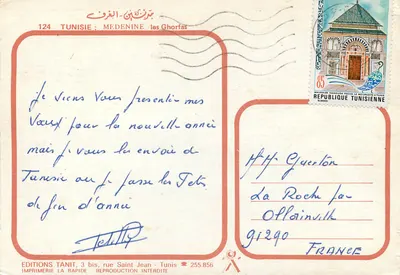 جرف تين - الغرف
124 TUNISIE : MEDENINE les Ghorfas
REPUBLIQUE TUNISIENNE
Je viens vous presenter mes
Vœux pour la nouvelle année
mais je vous les envoie de
Tunisie ou je passe les fetes
de fin d'année
Mr Mr
La Roche par
Ollainville
91290
FRANCE
EDITIONS TANIT, 3 bis, rue Saint Jean - Tunis ☎ 255.856
IMPRIMERIE LA PAPIER REPRODUCTION INTERDITE